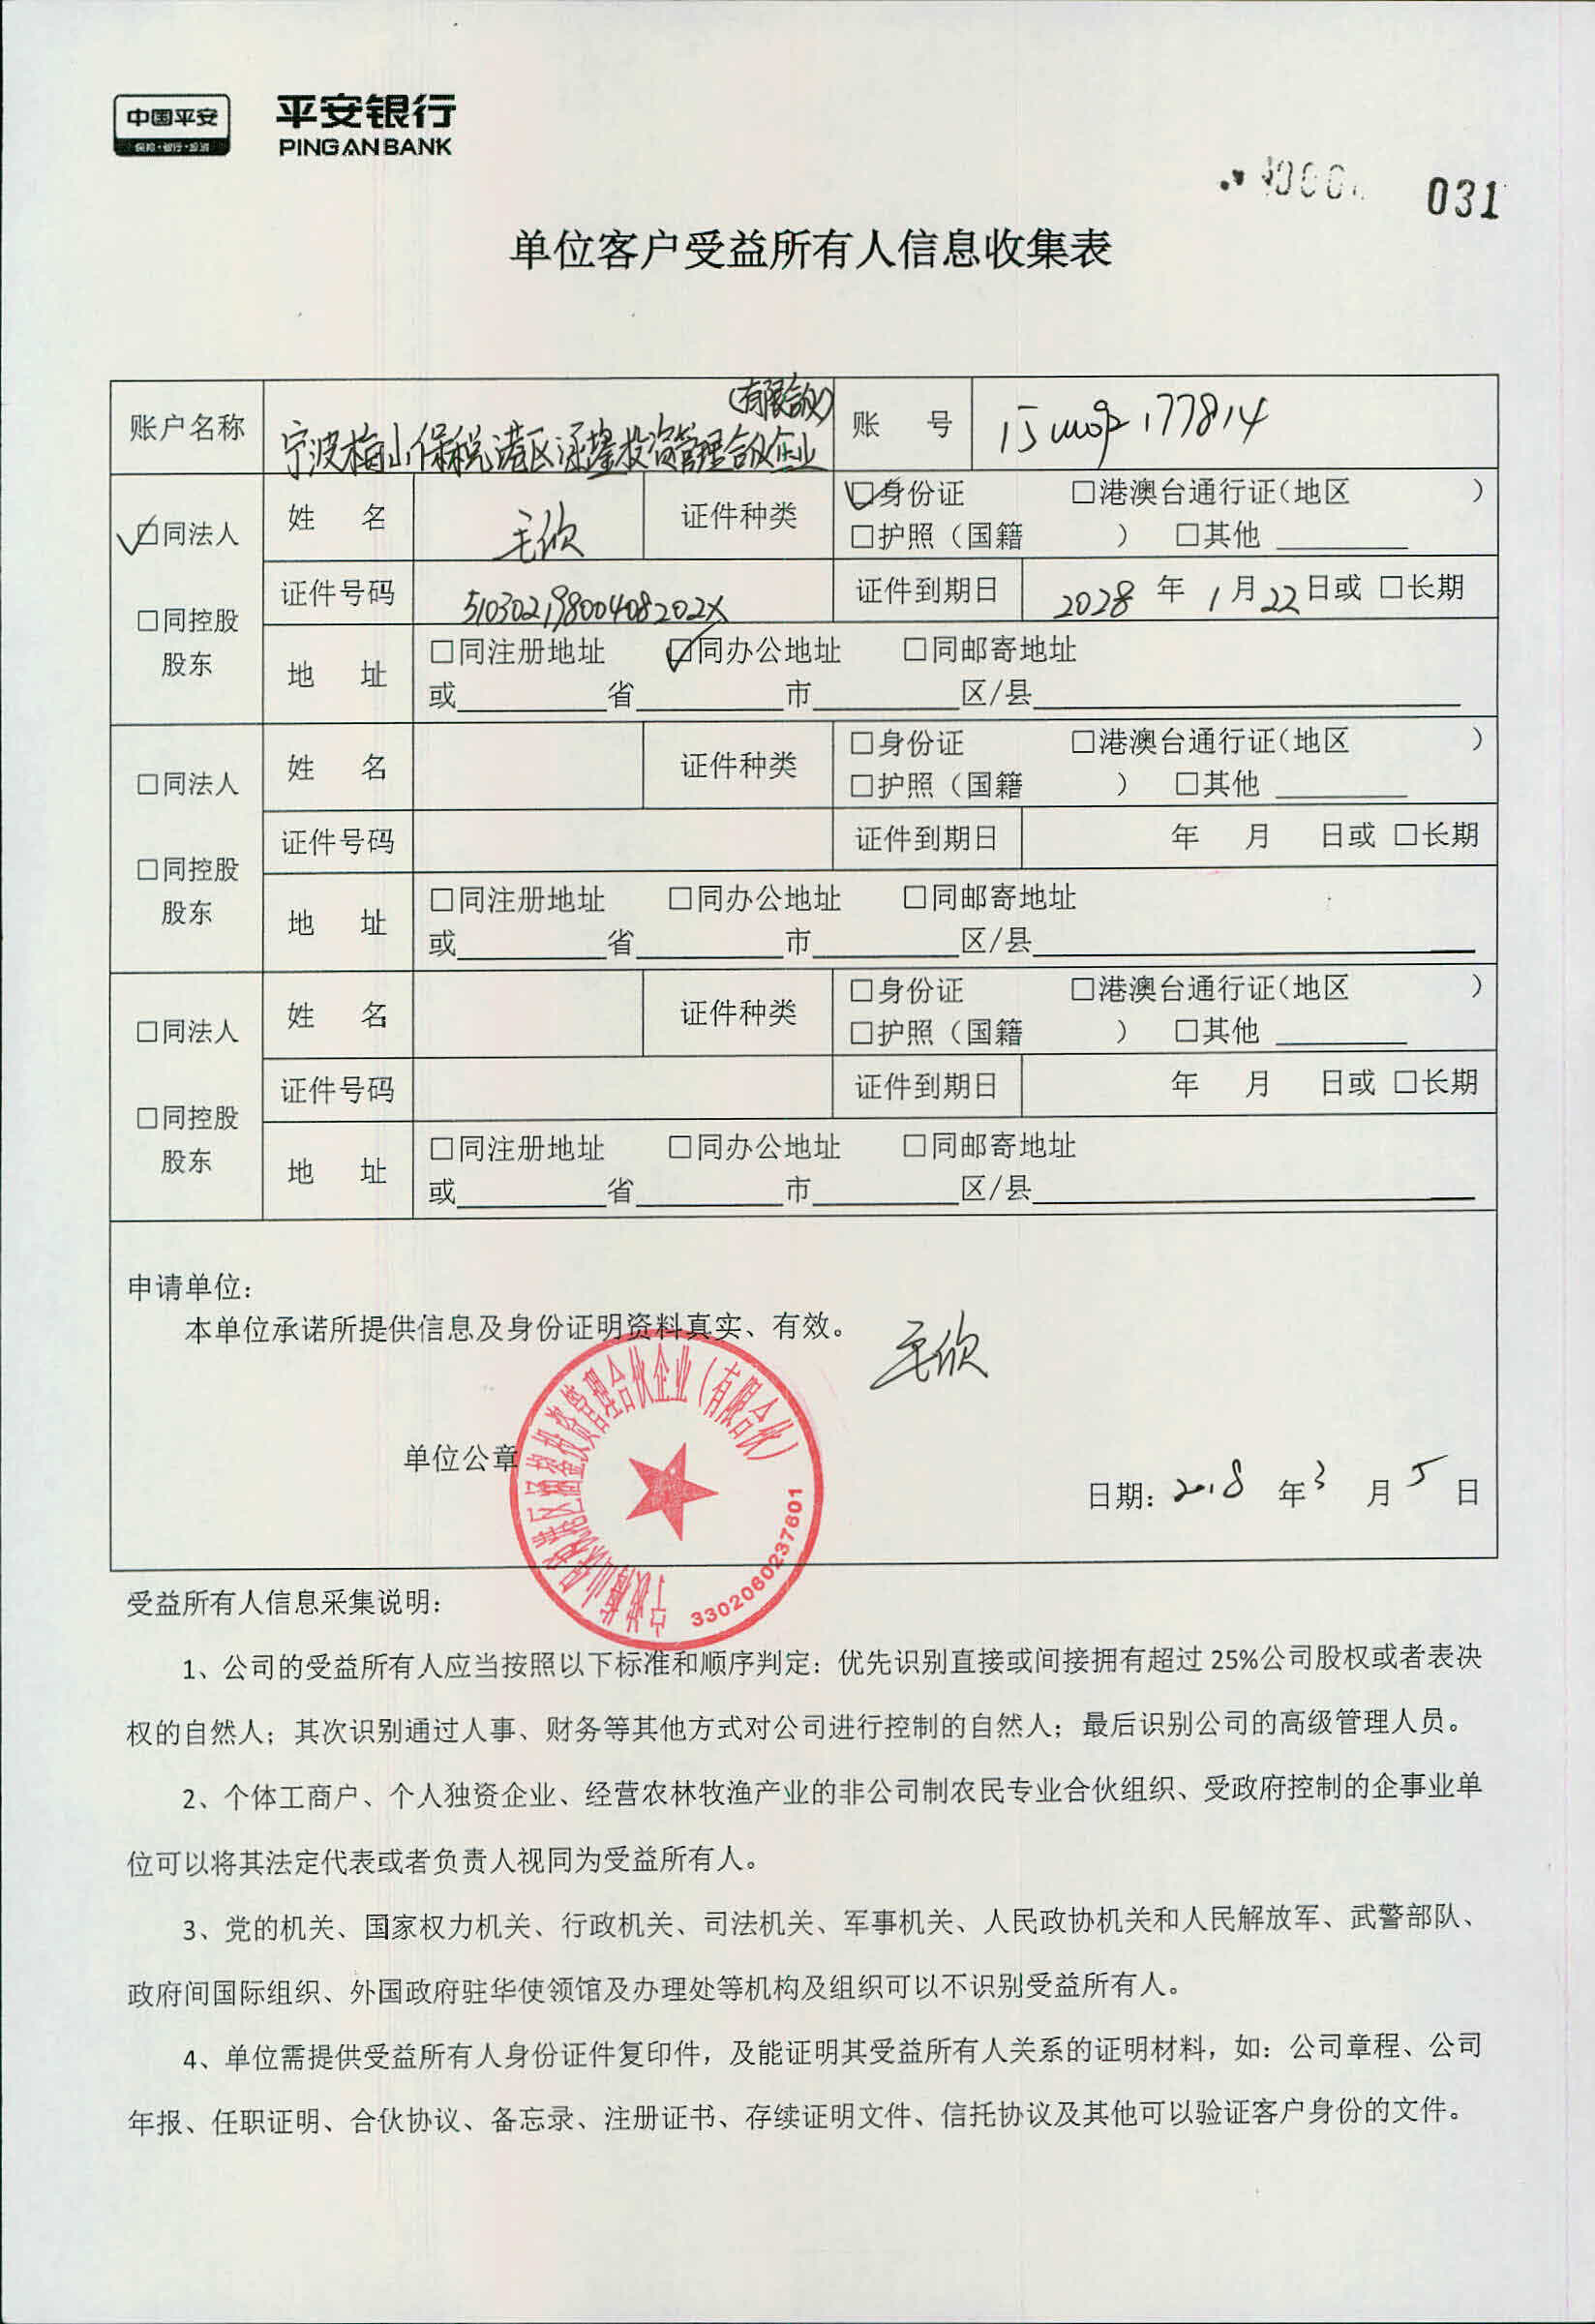 中国平安
保险·银行·投资
平安银行
PINGAN BANK
031
单位客户受益所有人信息收集表
账户名称 宁波梅山保税港区涵鋆投资管理合伙企业(有限合伙) 账 号 177814
☑同法人 姓 名 毛欣 证件种类 ☑身份证 □港澳台通行证(地区 )
□护照(国籍 ) □其他
□同控股股东 证件号码 51030219800408202X 证件到期日 2028 年 1 月 22 日或 □长期
地 址 □同注册地址 ☑同办公地址 □同邮寄地址
或 省 市 区/县
□同法人 姓 名 证件种类 □身份证 □港澳台通行证(地区 )
□护照(国籍 ) □其他
□同控股股东 证件号码 证件到期日 年 月 日或 □长期
地 址 □同注册地址 □同办公地址 □同邮寄地址
或 省 市 区/县
□同法人 姓 名 证件种类 □身份证 □港澳台通行证(地区 )
□护照(国籍 ) □其他
□同控股股东 证件号码 证件到期日 年 月 日或 □长期
地 址 □同注册地址 □同办公地址 □同邮寄地址
或 省 市 区/县
申请单位:
本单位承诺所提供信息及身份证明资料真实、有效。
毛欣
单位公章
宁波梅山保税港区涵鋆投资管理合伙企业(有限合伙)
3302060237601
日期: 2018 年 3 月 5 日
受益所有人信息采集说明:
1、公司的受益所有人应当按照以下标准和顺序判定:优先识别直接或间接拥有超过 25%公司股权或者表决
权的自然人;其次识别通过人事、财务等其他方式对公司进行控制的自然人;最后识别公司的高级管理人员。
2、个体工商户、个人独资企业、经营农林牧渔产业的非公司制农民专业合伙组织、受政府控制的企事业单
位可以将其法定代表或者负责人视同为受益所有人。
3、党的机关、国家权力机关、行政机关、司法机关、军事机关、人民政协机关和人民解放军、武警部队、
政府间国际组织、外国政府驻华使领馆及办理处等机构及组织可以不识别受益所有人。
4、单位需提供受益所有人身份证件复印件,及能证明其受益所有人关系的证明材料,如:公司章程、公司
年报、任职证明、合伙协议、备忘录、注册证书、存续证明文件、信托协议及其他可以验证客户身份的文件。